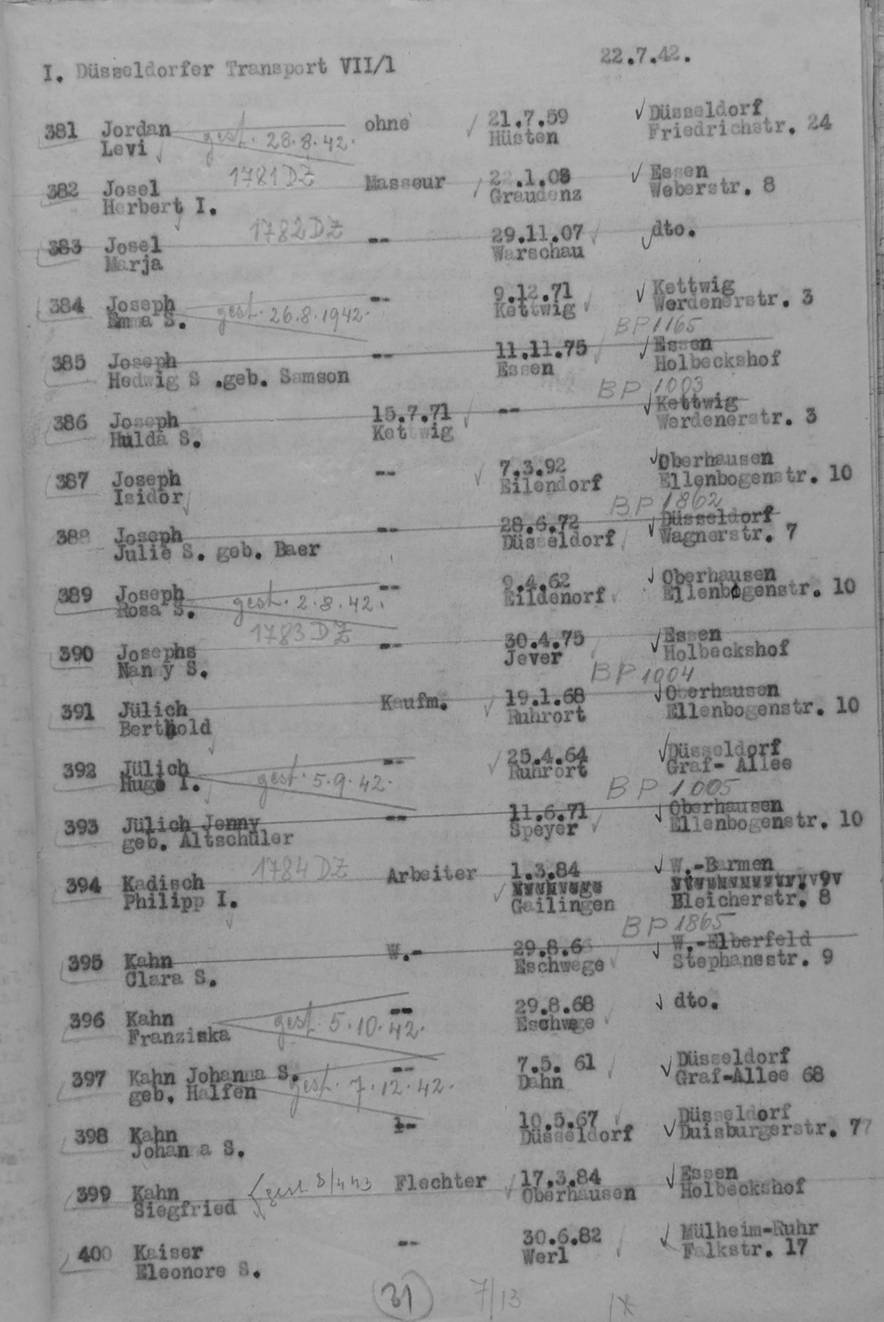 I. Düsseldorfer Transport VII/1 22.7.42.
381 Jordan gest. 28.8.42. ohne 21.7.59 Düsseldorf
Levi Hüsten Friedrichstr. 24
1781 DZ
382 Josel Masseur 22.1.08 Essen
Herbert I. Graudenz Weberstr. 8
1782 DZ
383 Josel -- 29.11.07 dto.
Marja Warschau
384 Joseph gest. 26.8.1942. -- 9.12.71 Kettwig
Emma S. Kettwig Werdenerstr. 3
BP 1165
385 Joseph -- 11.11.75 Essen
Hedwig S .geb. Samson Essen Holbeckshof
BP 1003
386 Joseph 15.7.71 -- Kettwig
Hulda S. Kettwig Werdenerstr. 3
387 Joseph -- 7.3.92 Oberhausen
Isidor Eilendorf Ellenbogenstr. 10
BP 1862
388 Joseph -- 28.6.72 Düsseldorf
Julie S. geb. Baer Düsseldorf Wagnerstr. 7
389 Joseph gest. 2.8.42. -- 9.4.62 Oberhausen
Rosa S. Eildenorf Ellenbogenstr. 10
1783 DZ
390 Josephs -- 30.4.75 Essen
Nan y S. Jever Holbeckshof
BP 1004
391 Jülich Kaufm. 19.1.68 Oberhausen
Berthold Ruhrort Ellenbogenstr. 10
392 Jülich gest. 5.9.42. -- 25.4.64 Düsseldorf
Hugo I. Ruhrort Graf- Allee
BP 1005
393 Jülich Jenny -- 11.6.71 Oberhausen
geb. Altschüler Speyer Ellenbogenstr. 10
1784 DZ
394 Kadisch Arbeiter 1.3.84 W.-Barmen
Philipp I. Gailingen Bleicherstr. 8
BP 1865
395 Kahn W.- 29.8.6 W.-Elberfeld
Clara S. Eschwege Stephansstr. 9
396 Kahn gest. 5.10.42. -- 29.8.68 dto.
Franziska Eschwege
397 Kahn Johanna S. gest. 7.12.42. -- 7.5. 61 Düsseldorf
geb. Halfen Dahn Graf-Allee 68
398 Kahn 10.5.67 Düsseldorf
Johan a S. Düsseldorf Duisburgerstr. 77
399 Kahn gest Flechter 17.3.84 Essen
Siegfried Oberhausen Holbeckshof
400 Kaiser -- 30.6.82 Mülheim-Ruhr
Eleonore S. Werl Falkstr. 17
31 7/13